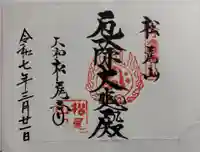 松尾山
厄除大黒殿
大和松尾寺
令和七年三月廿一日